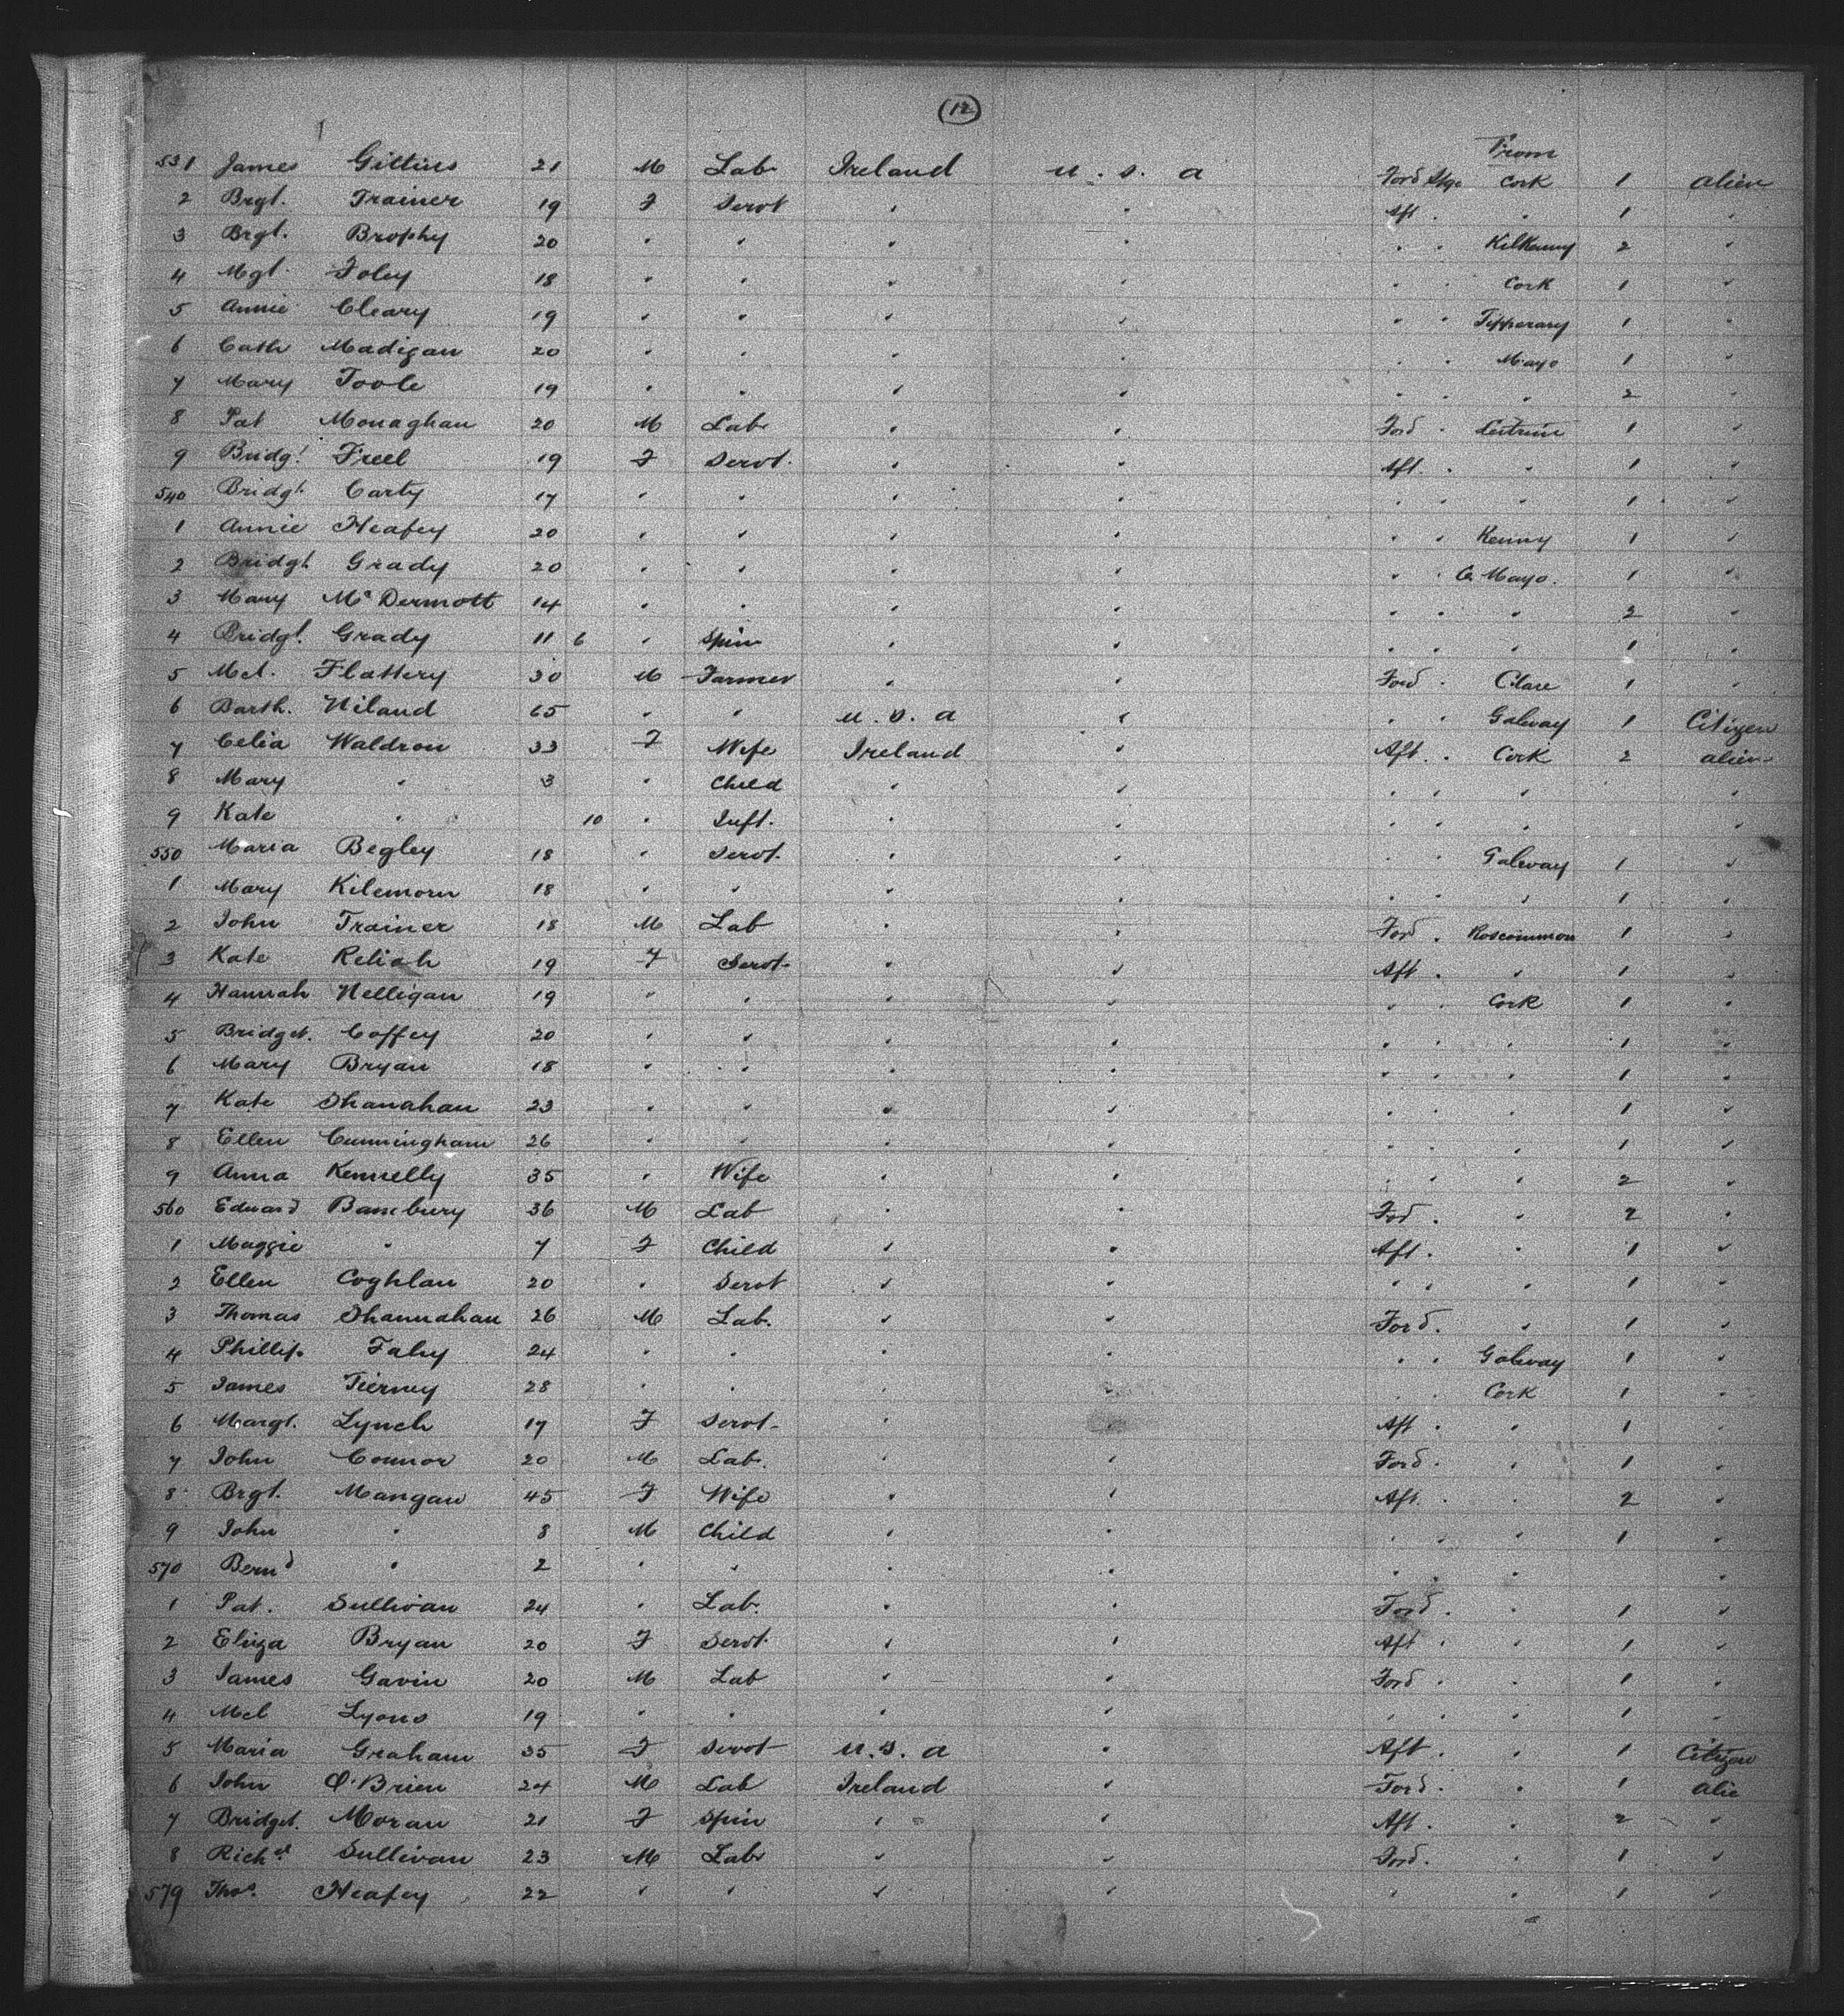 (12)
From
531 James Gittins 21 M Lab Ireland U.S.A Ford Stge Cork 1 alien
2 Brgt. Trainer 19 F Servt " " Aft. " 1 "
3 Brgt. Brophy 20 " " " " " " Kilkenny 2 "
4 Mgt. Foley 18 " " " " " " Cork 1 "
5 Annie Cleary 19 " " " " " " Tipperary 1 "
6 Cath Madigan 20 " " " " " " Mayo 1 "
7 Mary Toole 19 " " " " " " " 2 "
8 Pat Monaghan 20 M Lab " " Ford " Leitrim 1 "
9 Bridgt. Freel 19 F Servt. " " Aft. " " 1 "
540 Bridgt. Carty 17 " " " " " " " 1 "
1 Annie Heafey 20 " " " " " " Kenny 1 "
2 Bridgt. Grady 20 " " " " " " Co. Mayo. 1 "
3 Mary McDermott 14 " " " " " " " 2 "
4 Bridgt. Grady 11 6 " Spin " " " " " 1 "
5 Mcl. Flattery 30 M Farmer " " Ford " Clare 1 "
6 Barth. Niland 65 " " U.S.A " " " Galway 1 Citizen
7 Celia Waldron 33 F Wife Ireland " Aft. " Cork 2 alien
8 Mary " 3 " Child " " " " " "
9 Kate " 10 " Inft. " " " " " "
550 Maria Begley 18 " Servt. " " " " Galway 1 "
1 Mary Kilemorn 18 " " " " " " " 1 "
2 John Trainer 18 M Lab " " Ford " Roscommon 1 "
3 Kate Reliah 19 F Servt " " Aft. " " 1 "
4 Hannah Nelligan 19 " " " " " " Cork 1 "
5 Bridget. Coffey 20 " " " " " " " 1 "
6 Mary Bryan 18 " " " " " " " 1 "
7 Kate Shanahan 23 " " " " " " " 1 "
8 Ellen Cunningham 26 " " " " " " " 1 "
9 Anna Kennelly 35 " Wife " " " " " 2 "
560 Edward Bambury 36 M Lab " " Ford " " 2 "
1 Maggie " 7 F Child " " Aft. " 1 "
2 Ellen Coghlan 20 " Servt " " " " " 1 "
3 Thomas Shannahan 26 M Lab. " " Ford. " 1 "
4 Phillip. Fahy 24 " " " " " " Galway 1 "
5 James Tierney 28 " " " " " " Cork 1 "
6 Margt. Lynch 17 F Servt " " Aft " " 1 "
7 John Connor 20 M Lab. " " Ford. " 1 "
8 Brgt. Mangan 45 F Wife " " Aft. " 2 "
9 John " 8 M Child " " " " " 1 "
570 Bernd " 2 " " " " " " " "
1 Pat. Sullivan 24 " Lab. " " Ford. " 1 "
2 Eliza Bryan 20 F Servt. " " Aft " " 1 "
3 James Gavin 20 M Lab " " Ford " " 1 "
4 Mcl Lyons 19 " " " " " " " 1 "
5 Maria Graham 35 F Servt U.S.A " Aft. " 1 Citizen
6 John O'Brien 24 M Lab Ireland " Ford. " 1 alie
7 Bridget. Moran 21 F Spin " " Aft. " 2 "
8 Richd. Sullivan 23 M Lab " " Ford. " 1 "
579 Thos. Heafey 22 " " " " " " 1 "